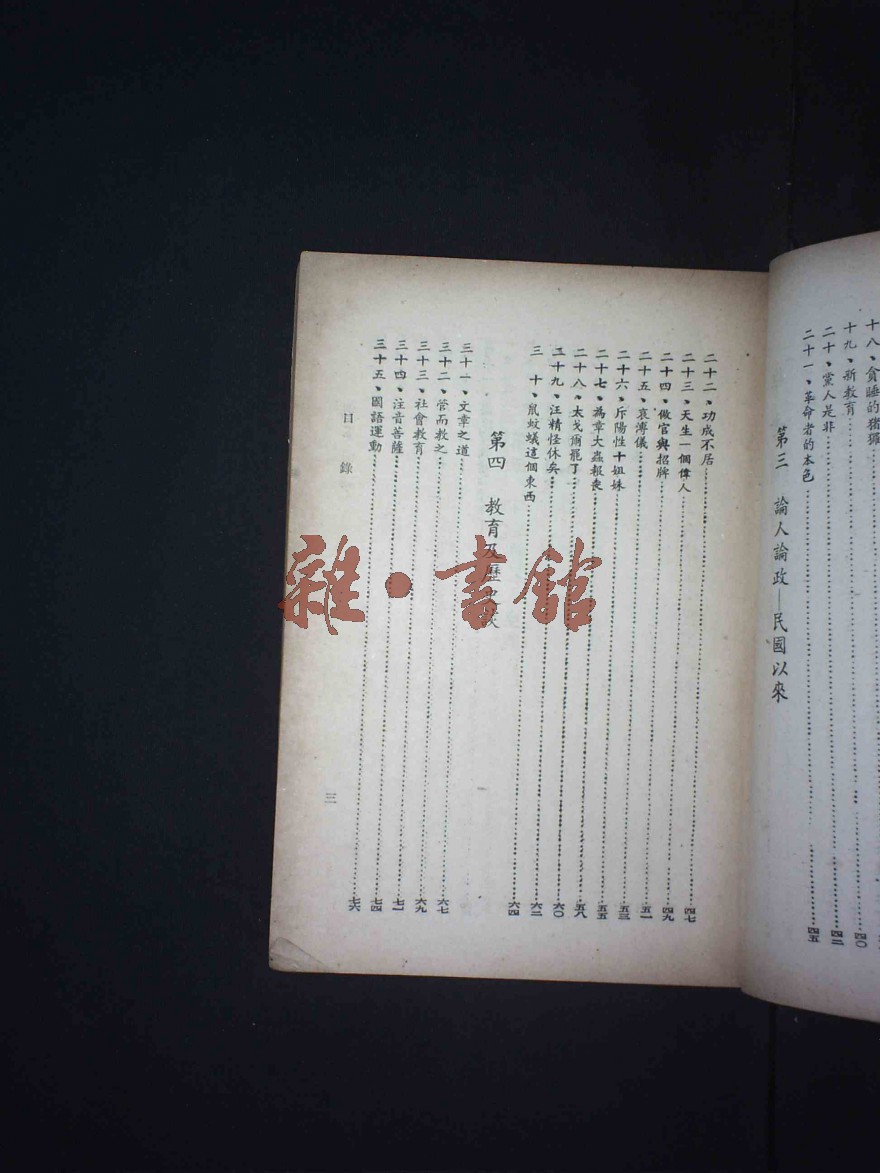 十八、貪睡的豬玀
十九、新教育……四〇
二十、黨人是非……四二
二十一、革命者的本色……四五
第三 論人論政—民國以來
二十二、功成不居……四七
二十三、天生一個偉人……四九
二十四、做官與招牌……五一
二十五、哀溥儀……五三
二十六、斥陽性十姐妹……五五
二十七、為章大蟲報喪……五八
二十八、太戈爾罷了……六〇
二十九、汪精怪休矣……六二
三 十、鼠蚊蟻這個東西……六四
第四 教育及歷
三十一、文章之道……六七
三十二、管而教之……六九
三十三、社會教育……七一
三十四、注音菩薩……七四
三十五、國語運動……七六
目 錄
三
雜·書館